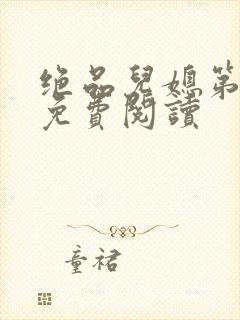 绝品兒媳第
免費閱讀
童裙